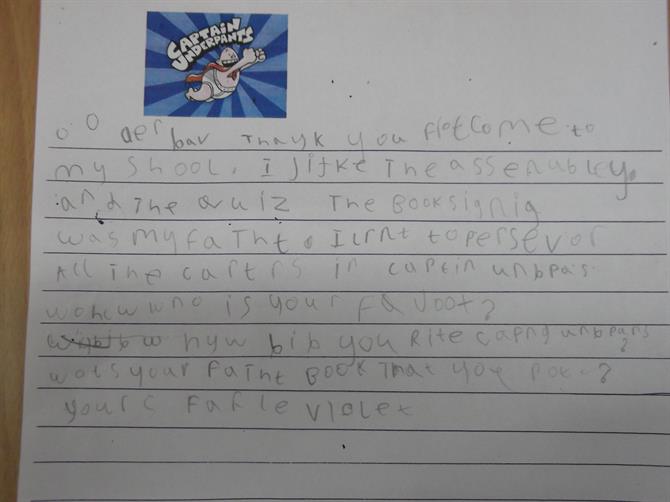 CAPTAIN
UNDERPANTS
o o der bav Thayk you flofcome to
my shool. I jifke The assenubley.
and The Quiz The Booksignig
was my faTht. I lrnt to persevor
All The carters in captin unbpais
who is your favoot?
hyw bib you Rite capng unbpans?
wots your faTht Book That you
yours fafle violet